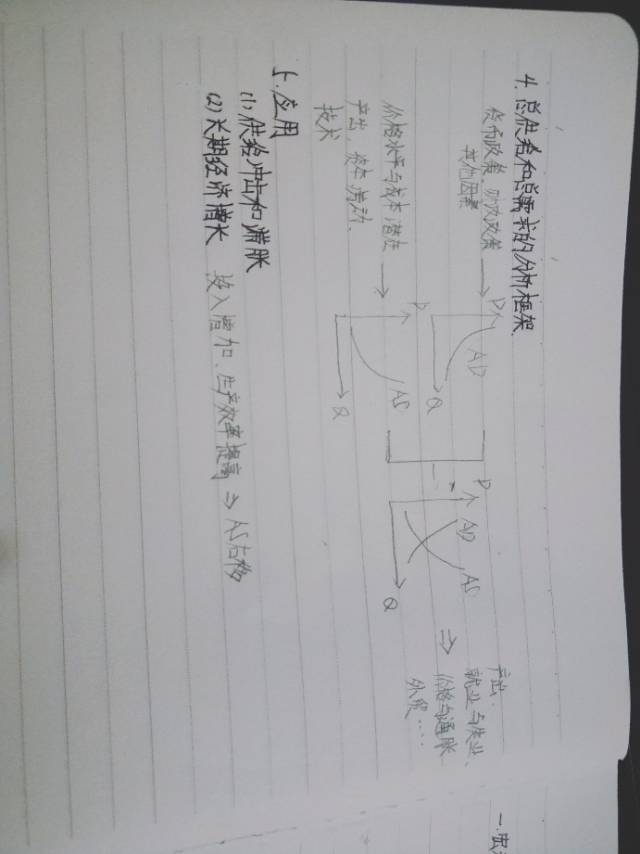 4. 总供给和总需求的分析框架.
货币政策、财政政策
其他因素
P
AD
Q
价格水平与成本 潜在
产出、资本 劳动、
技术
P
AS
Q
P
AD
AS
Q
产出.
就业与失业、
价格与通胀
外贸....
5. 应用
(1) 供给冲击和滞胀
(2) 长期经济增长 投入增加、生产效率提高 ⇒ AS右移
一.